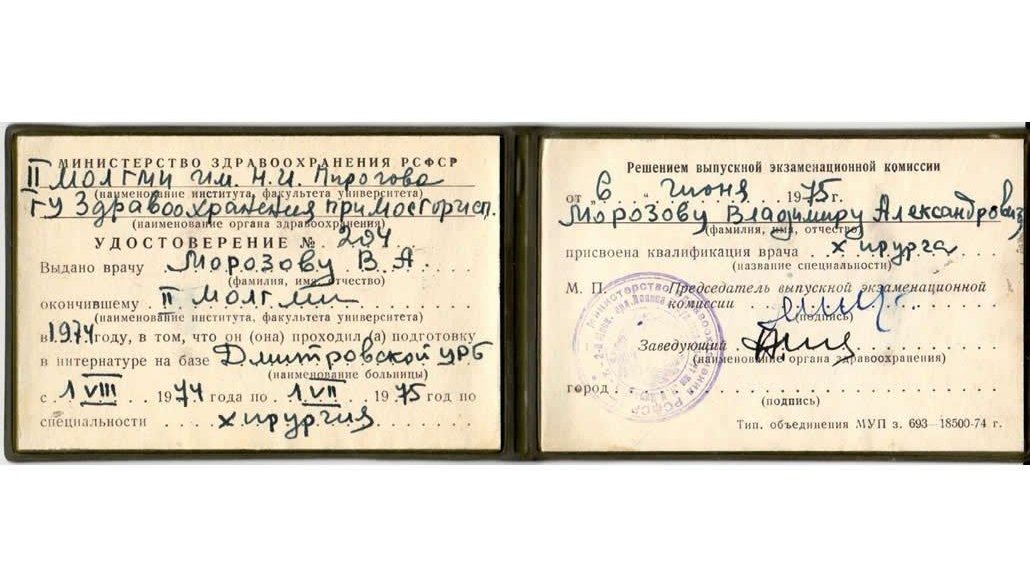 МИНИСТЕРСТВО ЗДРАВООХРАНЕНИЯ РСФСР
II МОЛГМИ им. Н.И. Пирогова
(наименование института, факультета университета)
ГУ Здравоохранения при Мосгорисп.
(наименование органа здравоохранения)
УДОСТОВЕРЕНИЕ № 294
Выдано врачу Морозову В. А
(фамилия, имя, отчество)
окончившему II МОЛГМИ
(наименование института, факультета университета)
в 1974 году, в том, что он (она) проходил (а) подготовку
в интернатуре на базе Дмитровской ЦРБ
(наименование больницы)
с 1 VIII 1974 года по 1 VII 1975 год по
специальности хирургия
Решением выпускной экзаменационной комиссии
от „6 " июня 1975 г.
Морозову Владимиру Александрович
(фамилия, имя, отчество)
присвоена квалификация врача хирурга
(название специальности)
М. П. Председатель выпускной экзаменационной
комиссии
(подпись)
Заведующий
(наименование органа здравоохранения)
город
(подпись)
Тип. объединения МУП з. 693—18500-74 г.
Министерство здравоохранения РСФСР